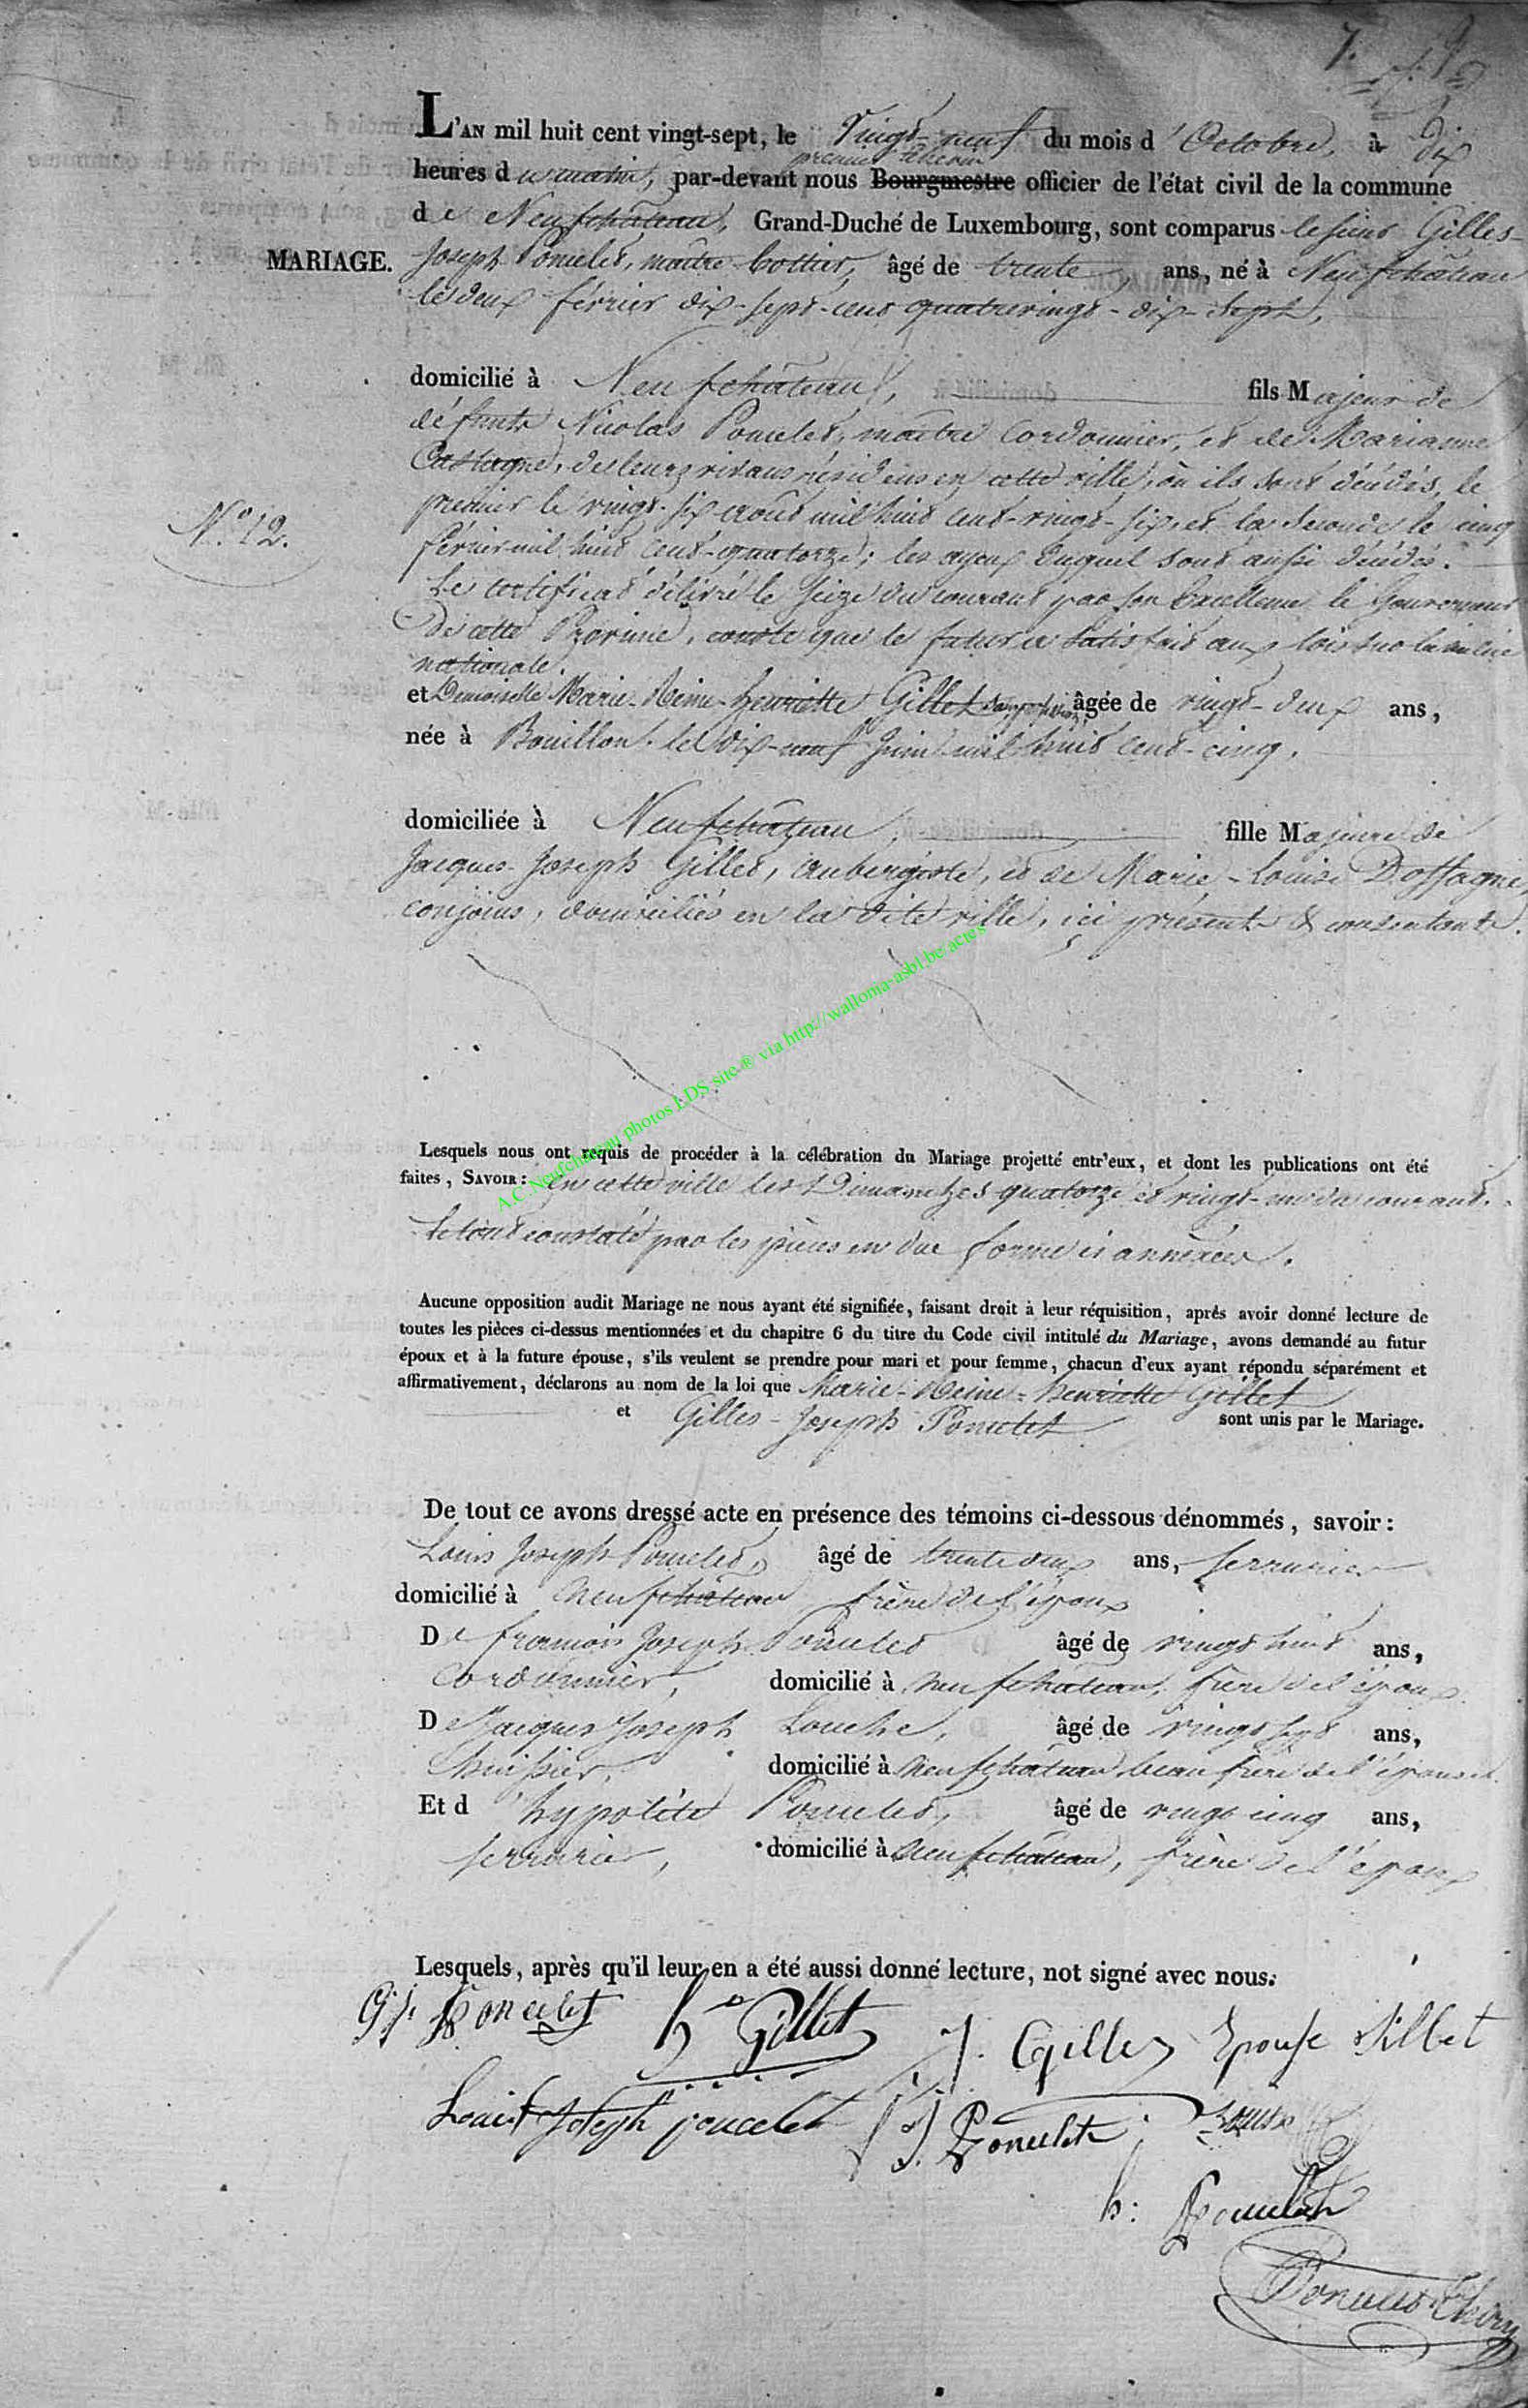 7.
L'AN mil huit cent vingt-sept, le Vingt-neuf du mois d'Octobre, à Dix
premier échevin
heures du matin, par-devant nous Bourgmestre officier de l'état civil de la commune
de Neufchâteau, Grand-Duché de Luxembourg, sont comparus le sieur Gilles-
MARIAGE.
Joseph Poncelet, maître bottier, âgé de trente ans, né à Neufchâteau
le deux février dix-sept-cent quatrevingt-dix-sept,
domicilié à Neufchâteau, fils Majeur de
défunts Nicolas Poncelet, maître Cordonnier, et de Marianne
Castagne, de leurs vivans résidens en cette ville, où ils sont décédés, le
premier le vingt-six août mil huit cent-vingt-six, et la seconde le cinq
N.° 12.
février mil huit cent-quatorze; les ayeux duquel sont aussi décédés.
Le certificat délivré le seize du courant par son Excellence le Gouverneur
De cette Province, conste que le futur a satisfait aux lois sur la milice
nationale.
et Demoiselle Marie-Reine-henriette Gillet âgée de vingt-deux ans,
née à Bouillon le dix-neuf Juin mil huit cent-cinq.
domiciliée à Neufchâteau, fille Majeure de
Jacques-Joseph Gillet, aubergiste, et de Marie-Louise Doffagne,
conjoins, domiciliés en la dite ville, ici présents & consentants.
A.C. Neufchâteau photos LDS site ® via http://wallonia-asbl.be/actes
Lesquels nous ont requis de procéder à la célébration du Mariage projetté entr'eux, et dont les publications ont été
faites, SAVOIR: en cette ville les Dimanches quatorze et vingt-un du courant.
Le tout constaté par les pièces en due forme ci annexées.
Aucune opposition audit Mariage ne nous ayant été signifiée, faisant droit à leur réquisition, après avoir donné lecture de
toutes les pièces ci-dessus mentionnées et du chapitre 6 du titre du Code civil intitulé du Mariage, avons demandé au futur
époux et à la future épouse, s'ils veulent se prendre pour mari et pour femme, chacun d'eux ayant répondu séparément et
affirmativement, déclarons au nom de la loi que Marie-Reine-henriette Gillet
et Gilles-Joseph Poncelet sont unis par le Mariage.
De tout ce avons dressé acte en présence des témoins ci-dessous dénommés, savoir:
Louis Joseph Poncelet, âgé de trente deux ans, serrurier
domicilié à neufchâteau frère de l'époux
De françois Joseph Poncelet âgé de vingt huit ans,
cordonnier, domicilié à neufchâteau, frère de l'époux.
De Jacques Joseph Louche, âgé de vingt sept ans,
huissier, domicilié à neufchâteau beau frère de l'épouse.
Et d'hypolite Poncelet, âgé de vingt cinq ans,
serrurier, domicilié à neufchâteau, frère de l'époux
Lesquels, après qu'il leur en a été aussi donné lecture, not signé avec nous.
G. J. Poncelet h.te Gillet J. Gillet Epouse Gillet
Louis Joseph poncelet f. J. Poncelet
h: Poncelet
Poncelet Thiry